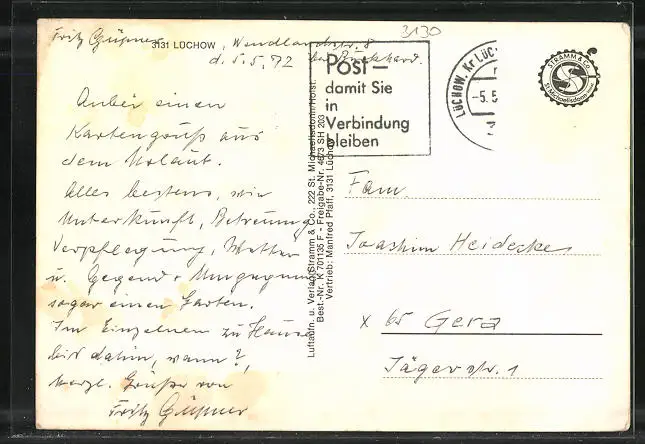 3130
Fritz Güßner 3131 LÜCHOW, Wendlandstr. 8
d. 5.5.72 bei Burkhard.
Anbei einen
Kartengruß aus
dem Urlaub.
Alles bestens, wie
Unterkunft, Betreuung
Verpflegung, Wetter
u. Gegend + Umgegung
sogar einen Garten.
Im Einzelnen zu Hause
bis dahin, wann?,
herzl. Grüße von
Fritz Güßner
Luftaufn. u. Verlag Stramm & Co., 222 St. Michaelisdonn/Holst.
Best.-Nr. K 701135 F - Freigabe-Nr. 4673 SH 203
Vertrieb: Manfred Pfaff, 3131 Lüchow
Post –
damit Sie
in
Verbindung
bleiben
LÜCHOW, Kr LÜC
-5.5
STRAMM & Co
St. Michaelisdonn
Fam.
Joachim Heidecke
x 65 Gera
Jägerstr. 1